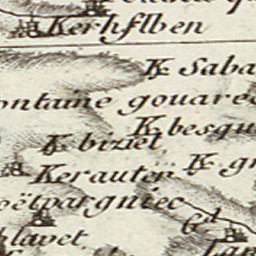 Kerhflben
K Saba
ontaine gouarec
K besqu
K biziel
Kerauten
K gr
oëtpargniec
Gd
blavet
Lan